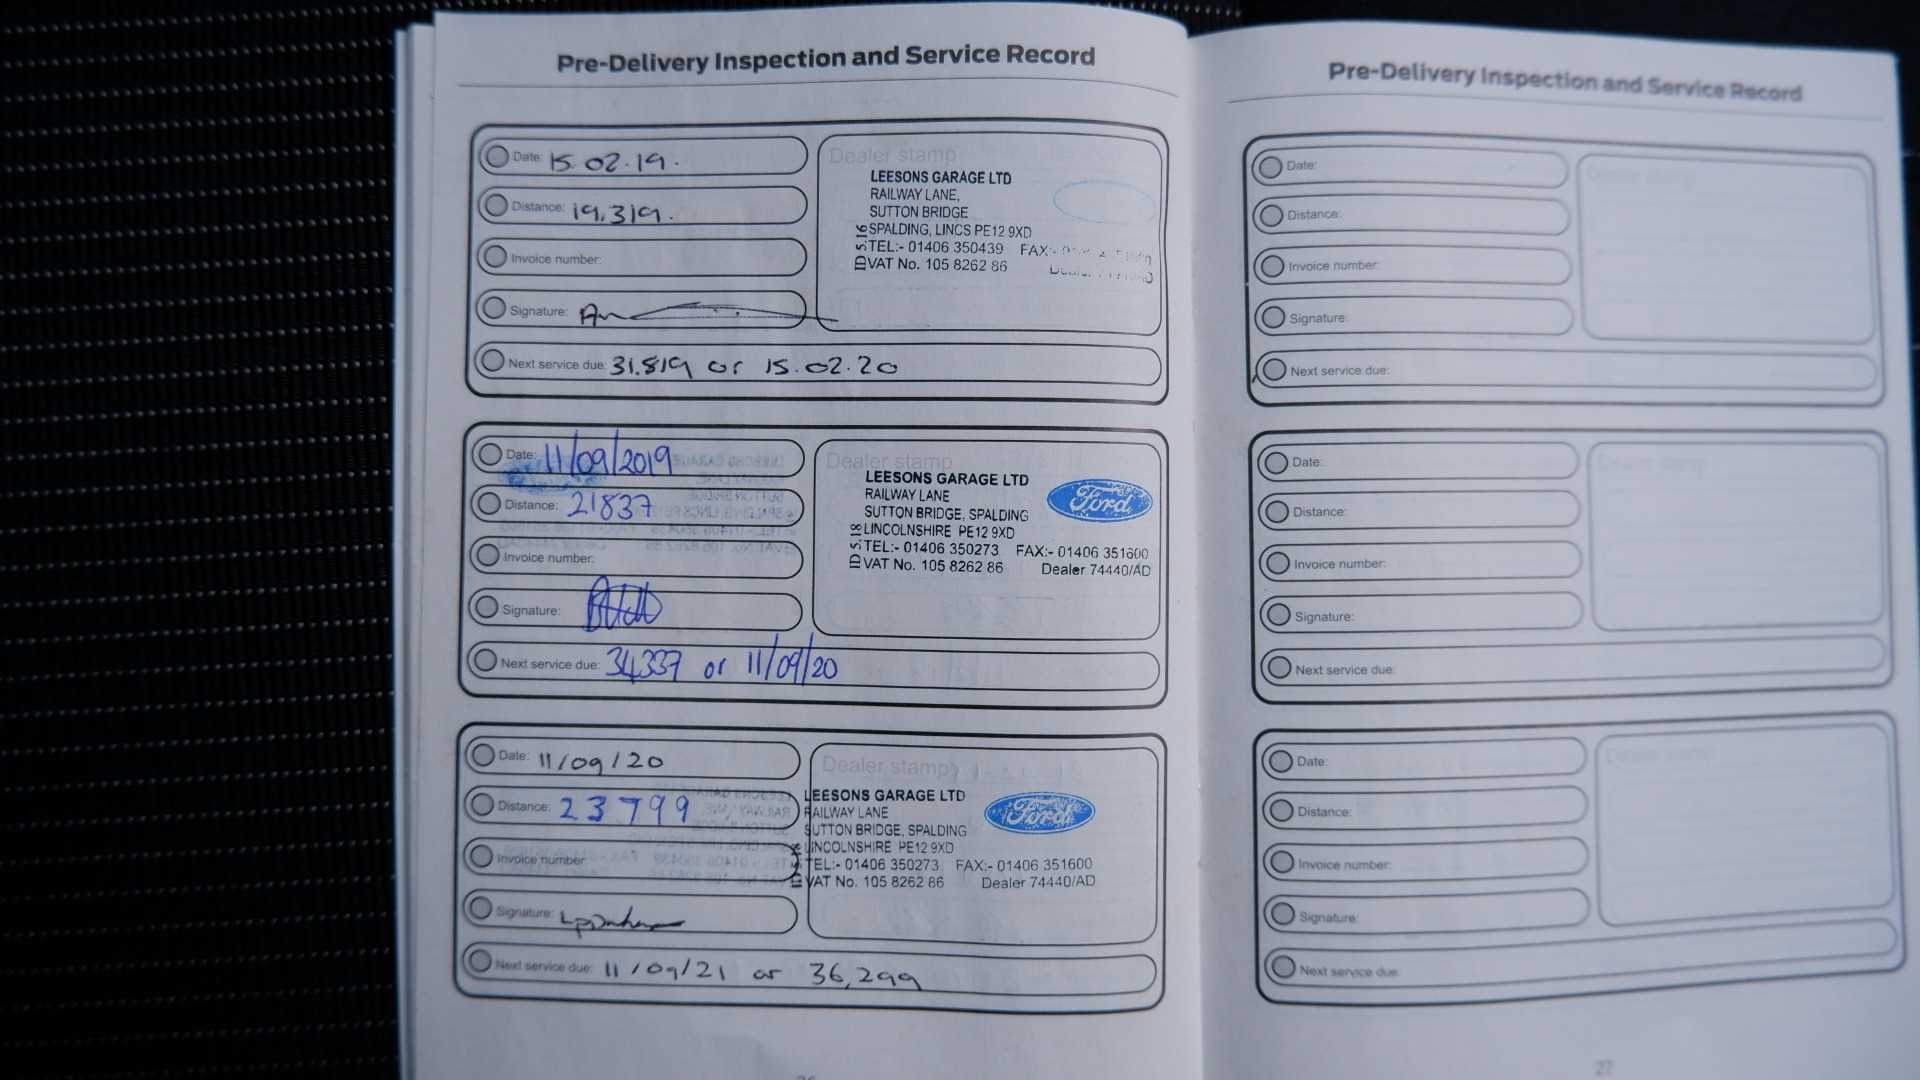 Pre-Delivery Inspection and Service Record
Date: 15.02.19.
Distance: 19,319.
Invoice number:
Signature:
Next service due: 31.819 or 15.02.20
Dealer stamp
LEESONS GARAGE LTD
RAILWAY LANE,
SUTTON BRIDGE
SPALDING, LINCS PE12 9XD
TEL:- 01406 350439 FAX:-
VAT No. 105 8262 86
IDS 16
Date: 11/09/2019
Distance: 21837
Invoice number:
Signature:
Next service due: 34337 or 11/09/20
Dealer stamp
LEESONS GARAGE LTD
RAILWAY LANE
SUTTON BRIDGE, SPALDING
LINCOLNSHIRE PE12 9XD
TEL:- 01406 350273 FAX:- 01406 351600
VAT No. 105 8262 86 Dealer 74440/AD
IDS 18
Ford
Date: 11/09/20
Distance: 23799
Invoice number
Signature:
Next service due: 11/09/21 or 36,299
Dealer stamp
LEESONS GARAGE LTD
RAILWAY LANE
SUTTON BRIDGE, SPALDING
LINCOLNSHIRE PE12 9XD
TEL:- 01406 350273 FAX:- 01406 351600
VAT No. 105 8262 86 Dealer 74440/AD
Ford
Pre-Delivery Inspection and Service Record
Date:
Distance:
Invoice number:
Signature:
Next service due:
Date:
Distance:
Invoice number:
Signature:
Next service due:
Date:
Distance:
Invoice number:
Signature:
Next service due:
27